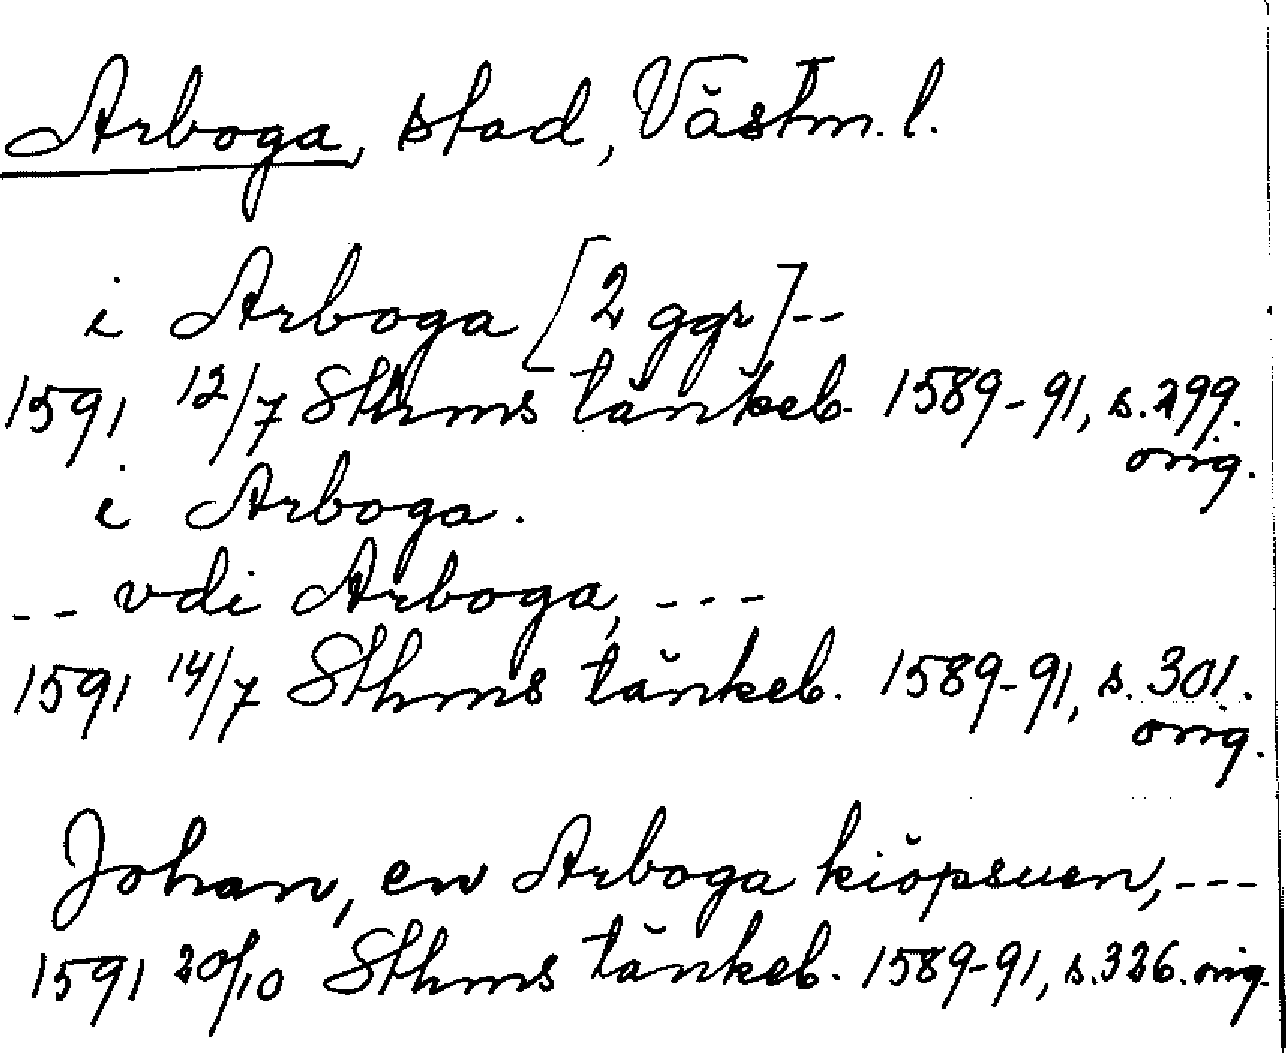 Arboga, stad, Västm. l.
i Arboga [2 ggr] --
1591 12/7 Sthms tänkeb. 1589-91, s. 299.
orig.
i Arboga.
-- vdi Arboga, ---
1591 14/7 Sthms tänkeb. 1589-91, s. 301.
orig.
Johan, en Arboga kiöpsuen, ---
1591 20/10 Sthms tänkeb. 1589-91, s. 326. orig.